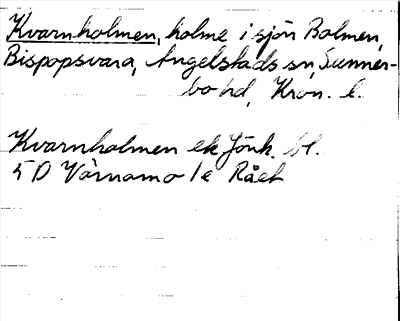 Kvarnholmen, holme i sjön Bolmen,
Bispopsvara, Angelstads sn, Sunner-
bo hd, Kron. l.
Kvarnholmen ek Jönk. bl.
5D Värnamo 1e Rået